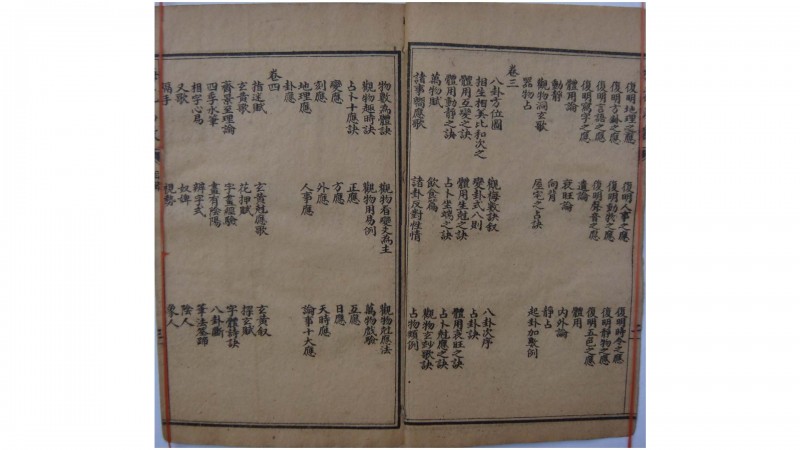 復明地理之應 復明人事之應 復明時令之應
復明方卦之應 復明動物之應 復明靜物之應
復明言語之應 復明聲音之應 復明五色之應
復明寫字之應 遺論 體用
體用論 衰旺論 內外論
動靜 向背 靜占
觀物洞玄歌 屋宅之占訣 起卦加數例
器物占
卷三
八卦方位圖 觀梅數訣敘 八卦次序
相生相尅比和次之 變卦式八則 占卦訣
體用互變之訣 體用生尅之訣 體用衰旺之訣
體用動靜之訣 占卜坐端之訣 占卜尅應之訣
萬物賦 飲食篇 觀物玄妙歌訣
諸事響應歌 諸卦反對性情 占物類例
物數為體訣 觀物看變爻為主 觀物尅應法
觀物趣時訣 觀物用易例 萬物戲驗
占卜十應訣 正應 互應
變應 方應 日應
刻應 外應 天時應
地理應 人事應 論事十大應
卦應
卷四
指迷賦 玄黃尅應歌 玄黃敘
玄黃歌 花押賦 探玄賦
齊景至理論 字畫經驗 字體詩訣
四季水筆 畫有陰陽 八卦斷
相字心易 辨字式 筆法筌蹄
又歌 奴婢 陰人